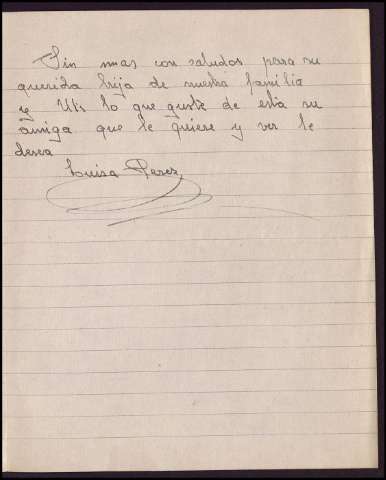 Sin mas con saludos para su
querida hija de nuestra familia
y Uds lo que guste de esta su
amiga que le quiere y ver le
desea
Luisa Perez